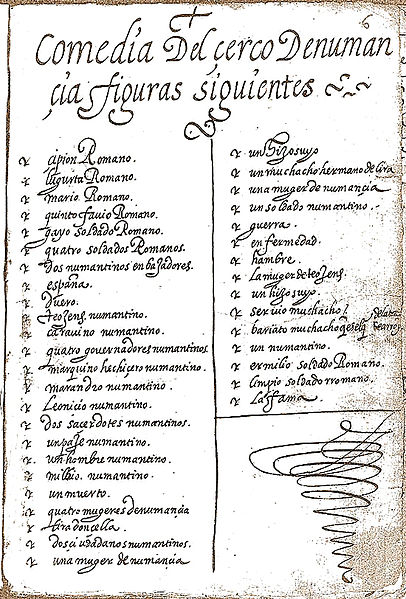 6
Comedia Del çerco Denuman
çia figuras siguientes
cipion Romano.
Iugurta Romano.
mario Romano.
quinto fauio Romano.
gayo soldado Romano.
quatro soldados Romanos.
dos numantinos enbaxadores.
españa.
duero.
teogens. numantino.
carauino numantino.
quatro governadores numantinos
marquino hechicero numantino.
marandro numantino.
Leonicio numantino.
dos sacerdotes numantinos.
un paje numantino.
un hombre numantino.
milbio. numantino.
un muerto.
quatro mugeres denumançia
lira donçella.
dos ciudadanos numantinos.
una muger de numancia
un Hijo suyo
un muchacho hermano de lira
una muger de numançia
un soldado numantino.
guerra.
enfermedad.
hambre.
La muger de teogens.
un hijo suyo.
seruio muchacho
bariato muchacho ques el q
se
un numantino.
ermilio soldado Romano.
limpio soldado rromano.
La ffama